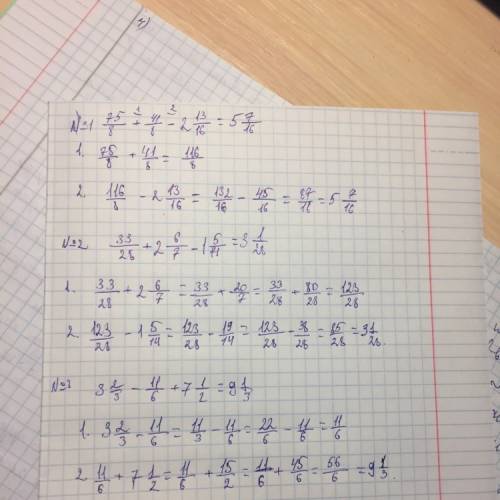 №1 75/8 + 41/8 - 2 13/16 = 5 7/16
1. 75/8 + 41/8 = 116/8
2. 116/8 - 2 13/16 = 132/16 - 45/16 = 87/16 = 5 7/16
№2 33/28 + 2 6/7 - 1 5/14 = 3 1/28
1. 33/28 + 2 6/7 = 33/28 + 20/7 = 33/28 + 80/28 = 123/28
2. 123/28 - 1 5/14 = 123/28 - 19/14 = 123/28 - 38/28 = 85/28 = 3 1/28.
№3 3 2/3 - 11/6 + 7 1/2 = 9 1/3
1. 3 2/3 - 11/6 = 11/3 - 11/6 = 22/6 - 11/6 = 11/6
2 11/6 + 7 1/2 = 11/6 + 15/2 = 11/6 + 45/6 = 56/6 = 9 1/3.